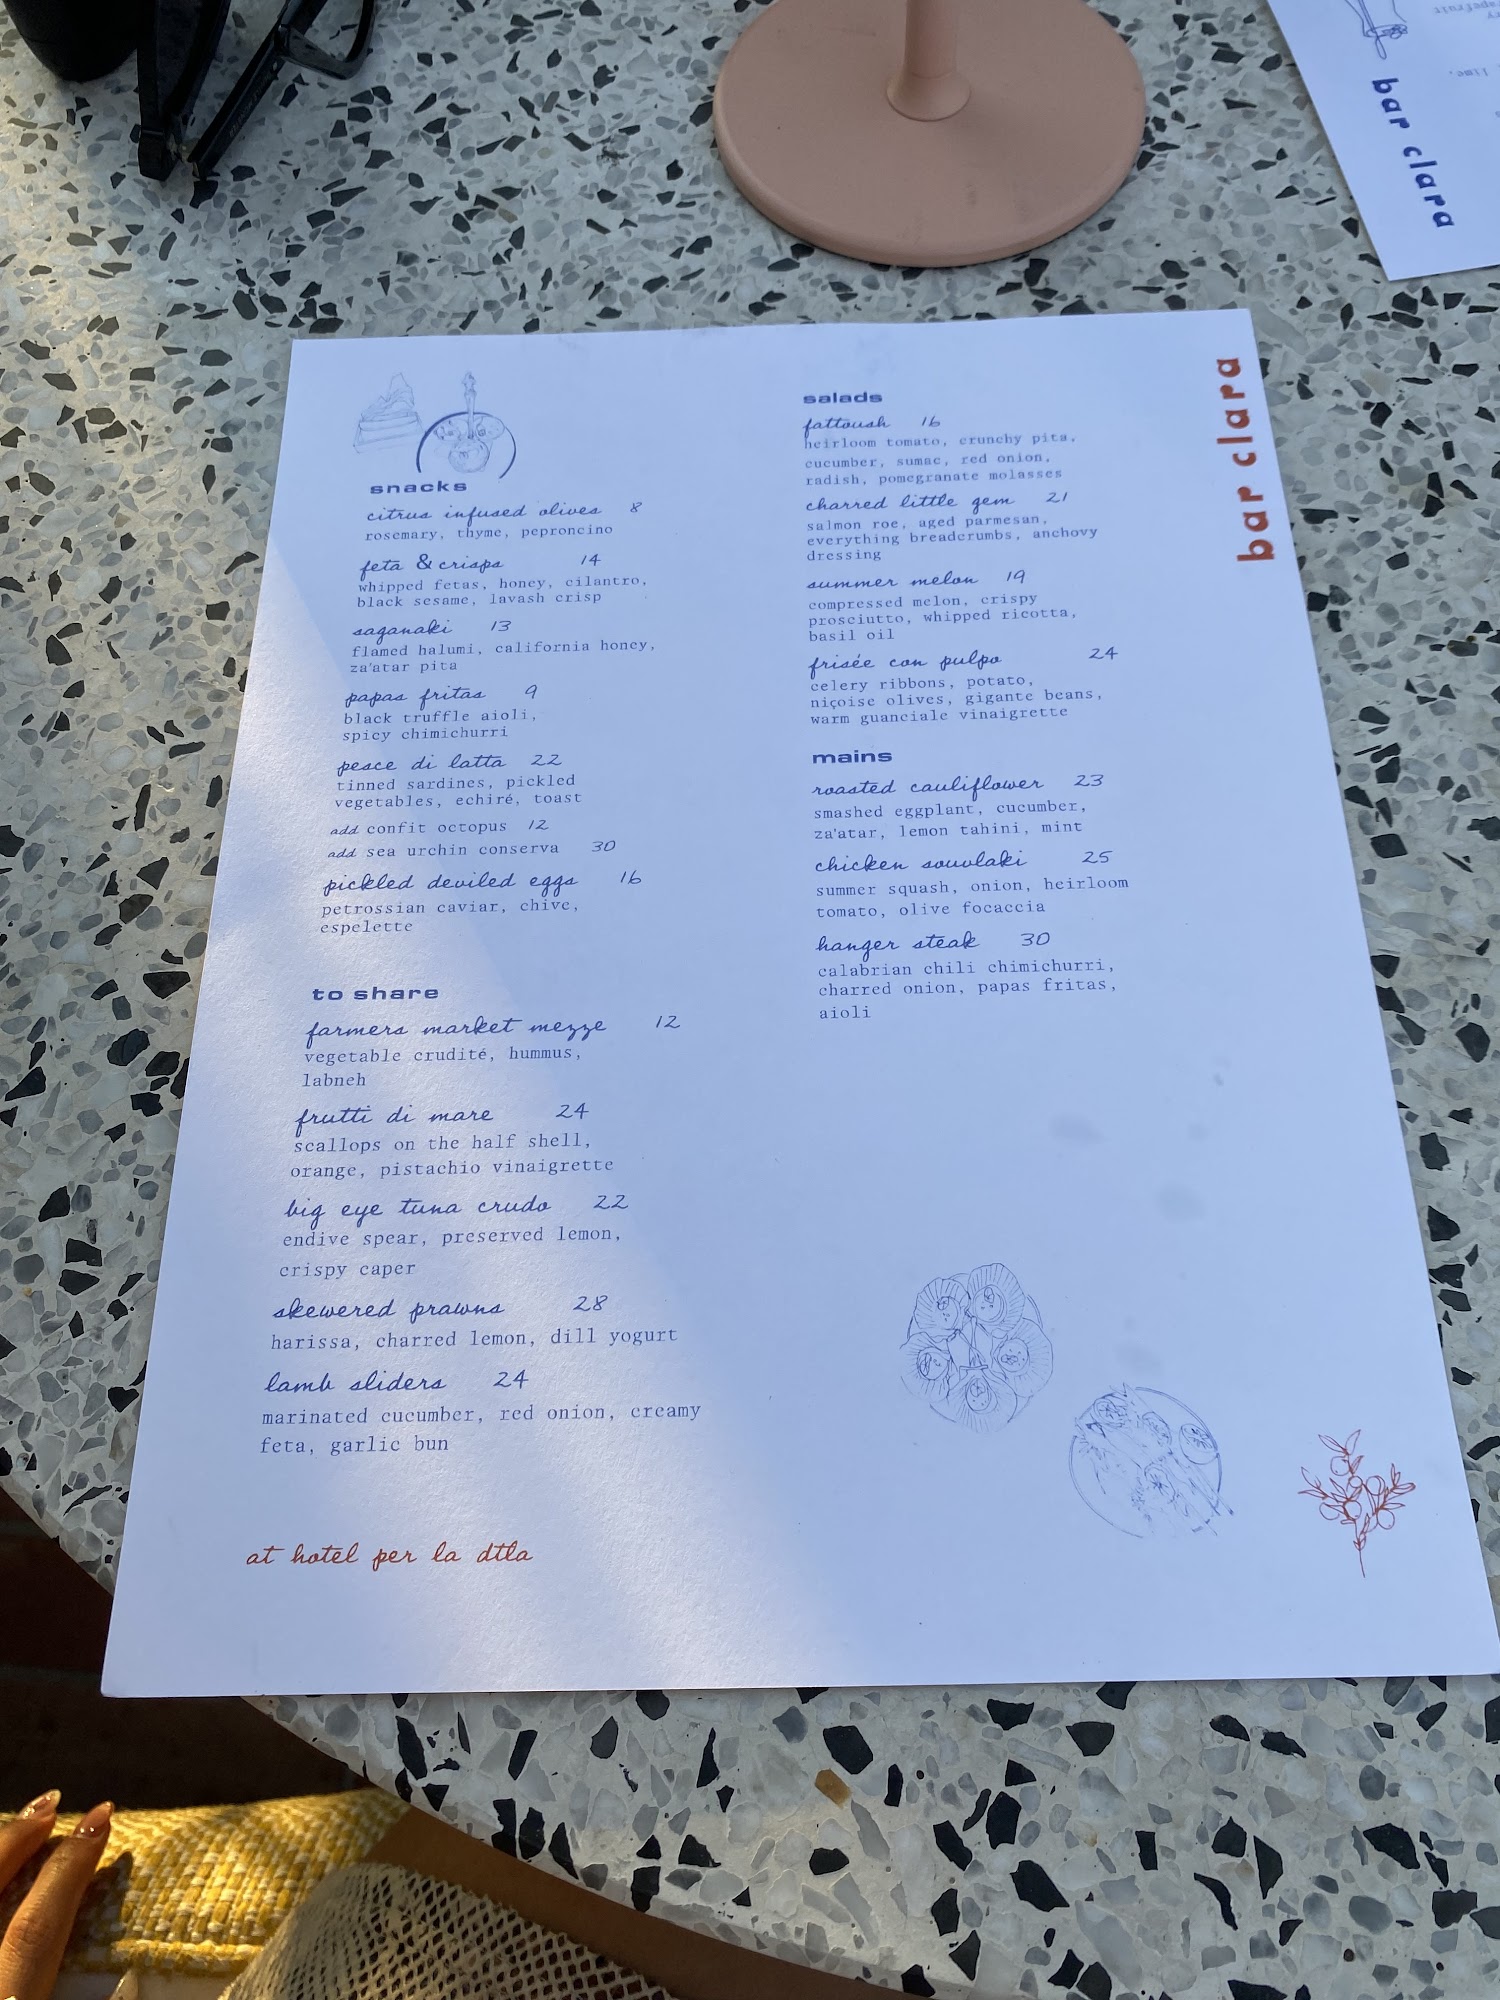 snacks
citrus infused olives 8
rosemary, thyme, peproncino
feta & crisps 14
whipped fetas, honey, cilantro,
black sesame, lavash crisp
saganaki 13
flamed halumi, california honey,
za'atar pita
papas fritas 9
black truffle aioli,
spicy chimichurri
pesce di latta 22
tinned sardines, pickled
vegetables, echiré, toast
add confit octopus 12
add sea urchin conserva 30
pickled deviled eggs 16
petrossian caviar, chive,
espelette
to share
farmers market mezze 12
vegetable crudité, hummus,
labneh
frutti di mare 24
scallops on the half shell,
orange, pistachio vinaigrette
big eye tuna crudo 22
endive spear, preserved lemon,
crispy caper
skewered prawns 28
harissa, charred lemon, dill yogurt
lamb sliders 24
marinated cucumber, red onion, creamy
feta, garlic bun
at hotel per la dtla
salads
fattoush 16
heirloom tomato, crunchy pita,
cucumber, sumac, red onion,
radish, pomegranate molasses
charred little gem 21
salmon roe, aged parmesan,
everything breadcrumbs, anchovy
dressing
summer melon 19
compressed melon, crispy
prosciutto, whipped ricotta,
basil oil
frisée con pulpo 24
celery ribbons, potato,
niçoise olives, gigante beans,
warm guanciale vinaigrette
mains
roasted cauliflower 23
smashed eggplant, cucumber,
za'atar, lemon tahini, mint
chicken souvlaki 25
summer squash, onion, heirloom
tomato, olive focaccia
hanger steak 30
calabrian chili chimichurri,
charred onion, papas fritas,
aioli
bar clara
bar clara
lime,